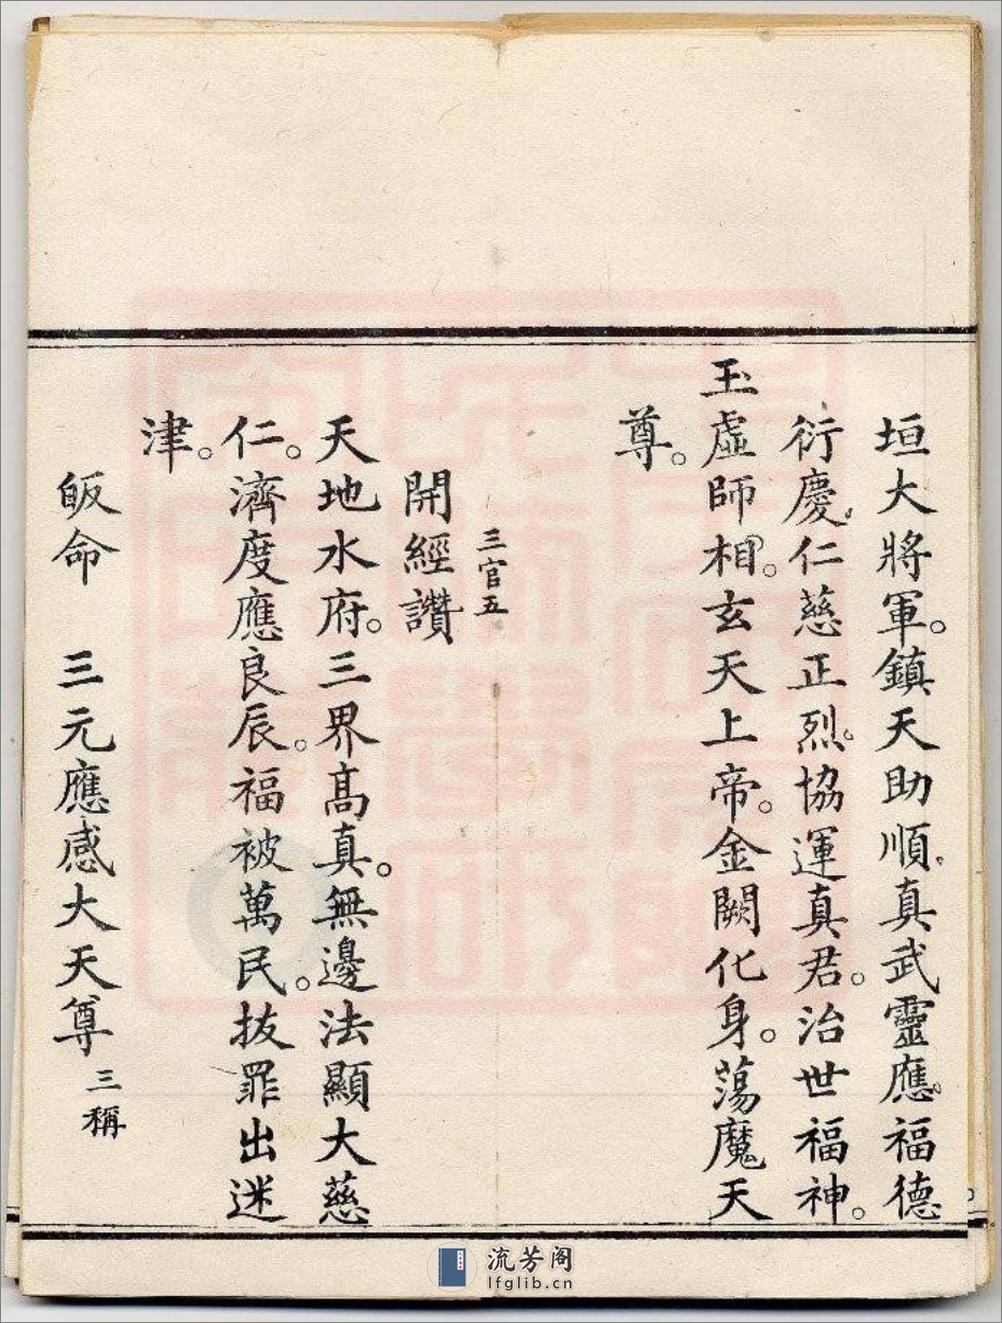 垣大將軍。鎮天助順。真武靈應。福德
衍慶。仁慈正烈。協運真君。治世福神。
玉虛師相。玄天上帝。金闕化身。蕩魔天
尊。
三官五
開經讚
天地水府。三界高真。無邊法顯大慈
仁。濟度應良辰。福被萬民。拔罪出迷
津。
皈命　三元應感大天尊三稱
流芳阁
lfglib.cn